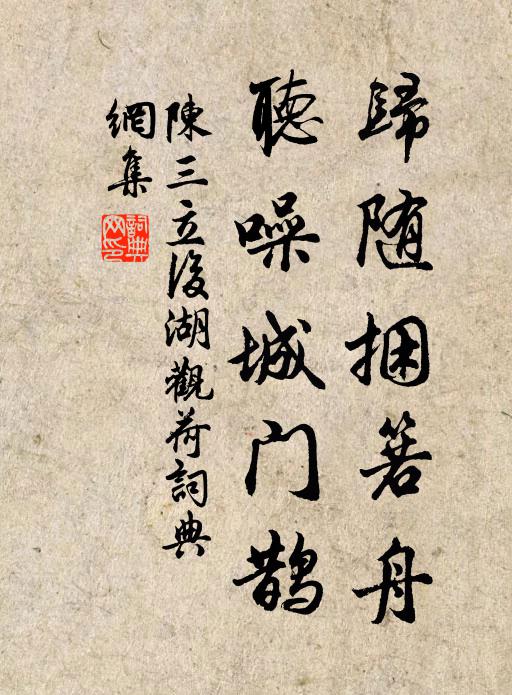 歸随捆箬舟
聽噪城门鹊
陳三立後湖觀荷詞典
網集
詞典
网印